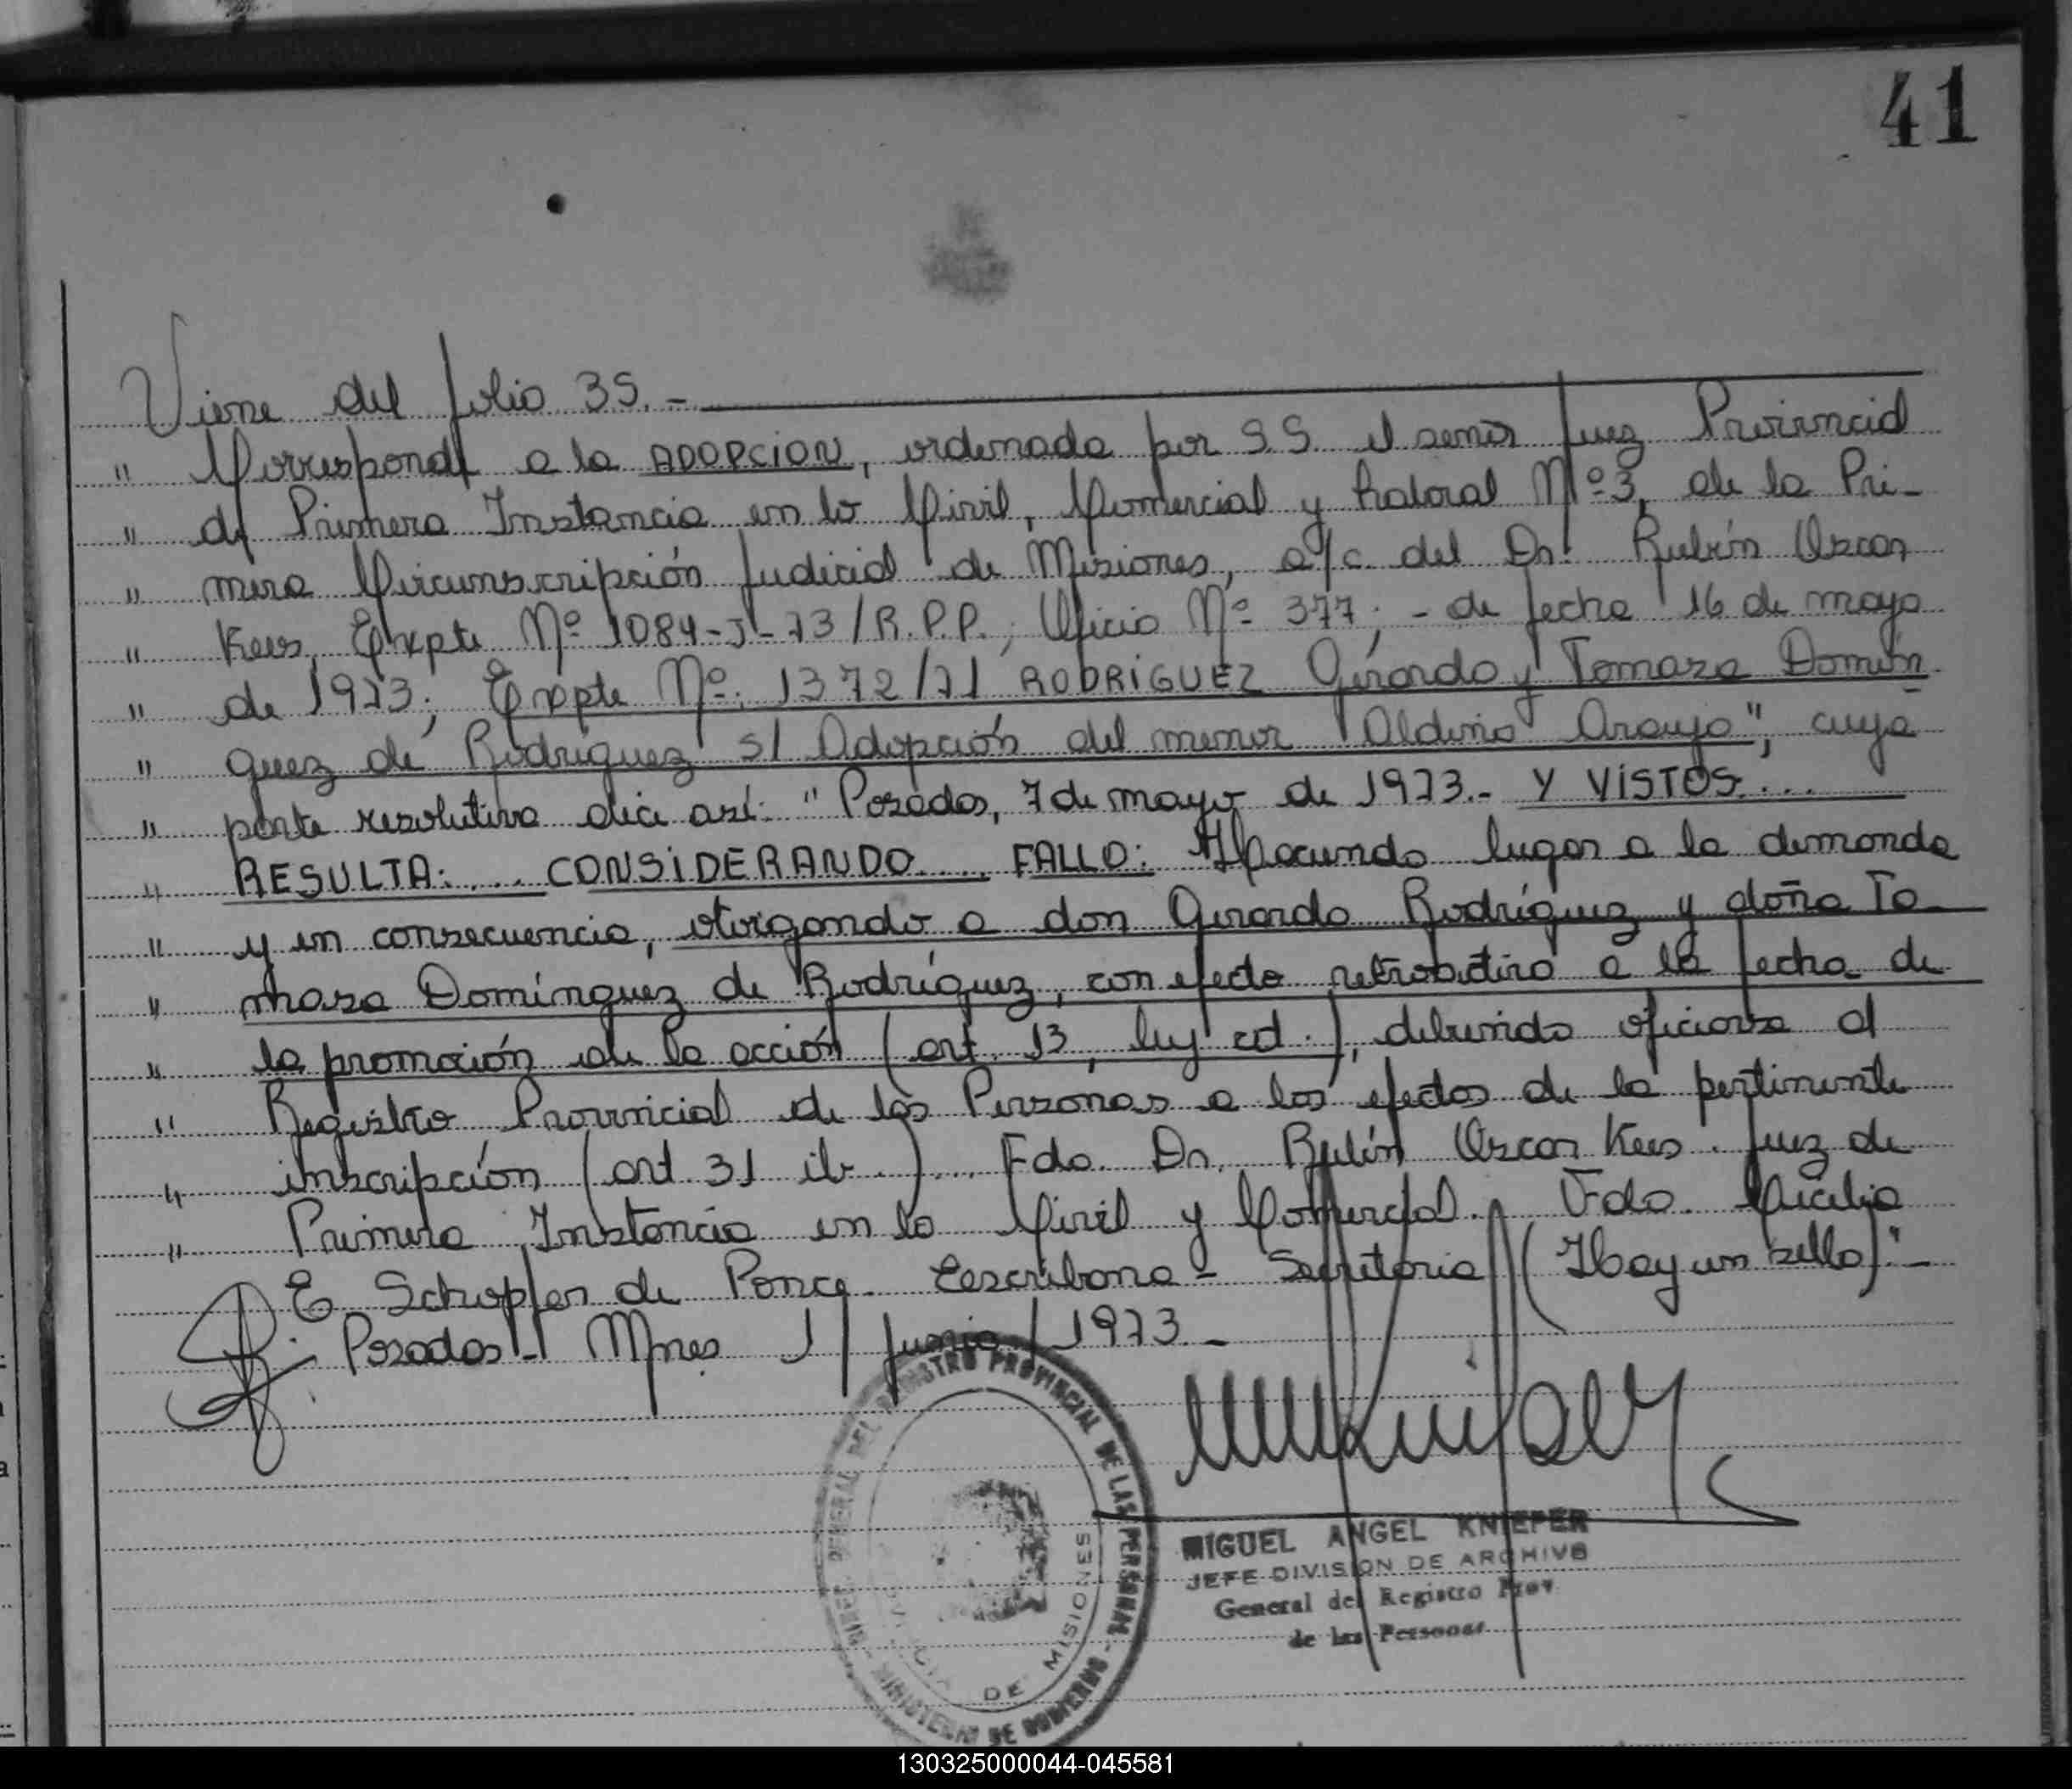 41
Viene del folio 35.-
" Corresponde a la ADOPCION, ordenada por S.S. el señor Juez Provincial
" de Primera Instancia en lo Civil, Comercial y Laboral Nº 3, de la Pri-
" mera Circunscripción Judicial de Misiones, a/c. del Dr. Rubén Oscar
" Kees, Expte Nº 1084-J-73/R.P.P., Oficio Nº 377; - de fecha 16 de mayo
" de 1973; Expte Nº. 1372/71 RODRIGUEZ Gerardo y Tomasa Domín
" guez de Rodríguez s/ Adopción del menor Aldino Araujo", cuya
" parte resolutiva dice así: "Posadas, 7 de mayo de 1973.- Y VISTOS....
" RESULTA:.... CONSIDERANDO.... FALLO: Haciendo lugar a la demanda
" y en consecuencia, otorgando a don Gerardo Rodríguez y doña To-
" masa Domínguez de Rodríguez, con efecto retroactivo a la fecha de
" la promoción de la acción (art. 13, ley cd.), debiendo oficiarse al
" Registro Provincial de las Personas a los efectos de la pertinente
" inscripción (art. 31 ib.).... Fdo. Dr. Rubén Oscar Kees. Juez de
" Primera Instancia en lo Civil y Comercial. Fdo. Cecilia
E. Schapfer de Ponce. Escribana - Secretaria (Hay un sello)."-
Posadas - Mnes 1/ Junio / 1973.-
DIREC. GENERAL DEL REGISTRO PROVINCIAL DE LAS PERSONAS - MINISTERIO DE GOBIERNO
DE MISIONES
MIGUEL ANGEL KNIEPER
JEFE DIVISION DE ARCHIVO
General del Registro Prov
de las Personas
130325000044-045581